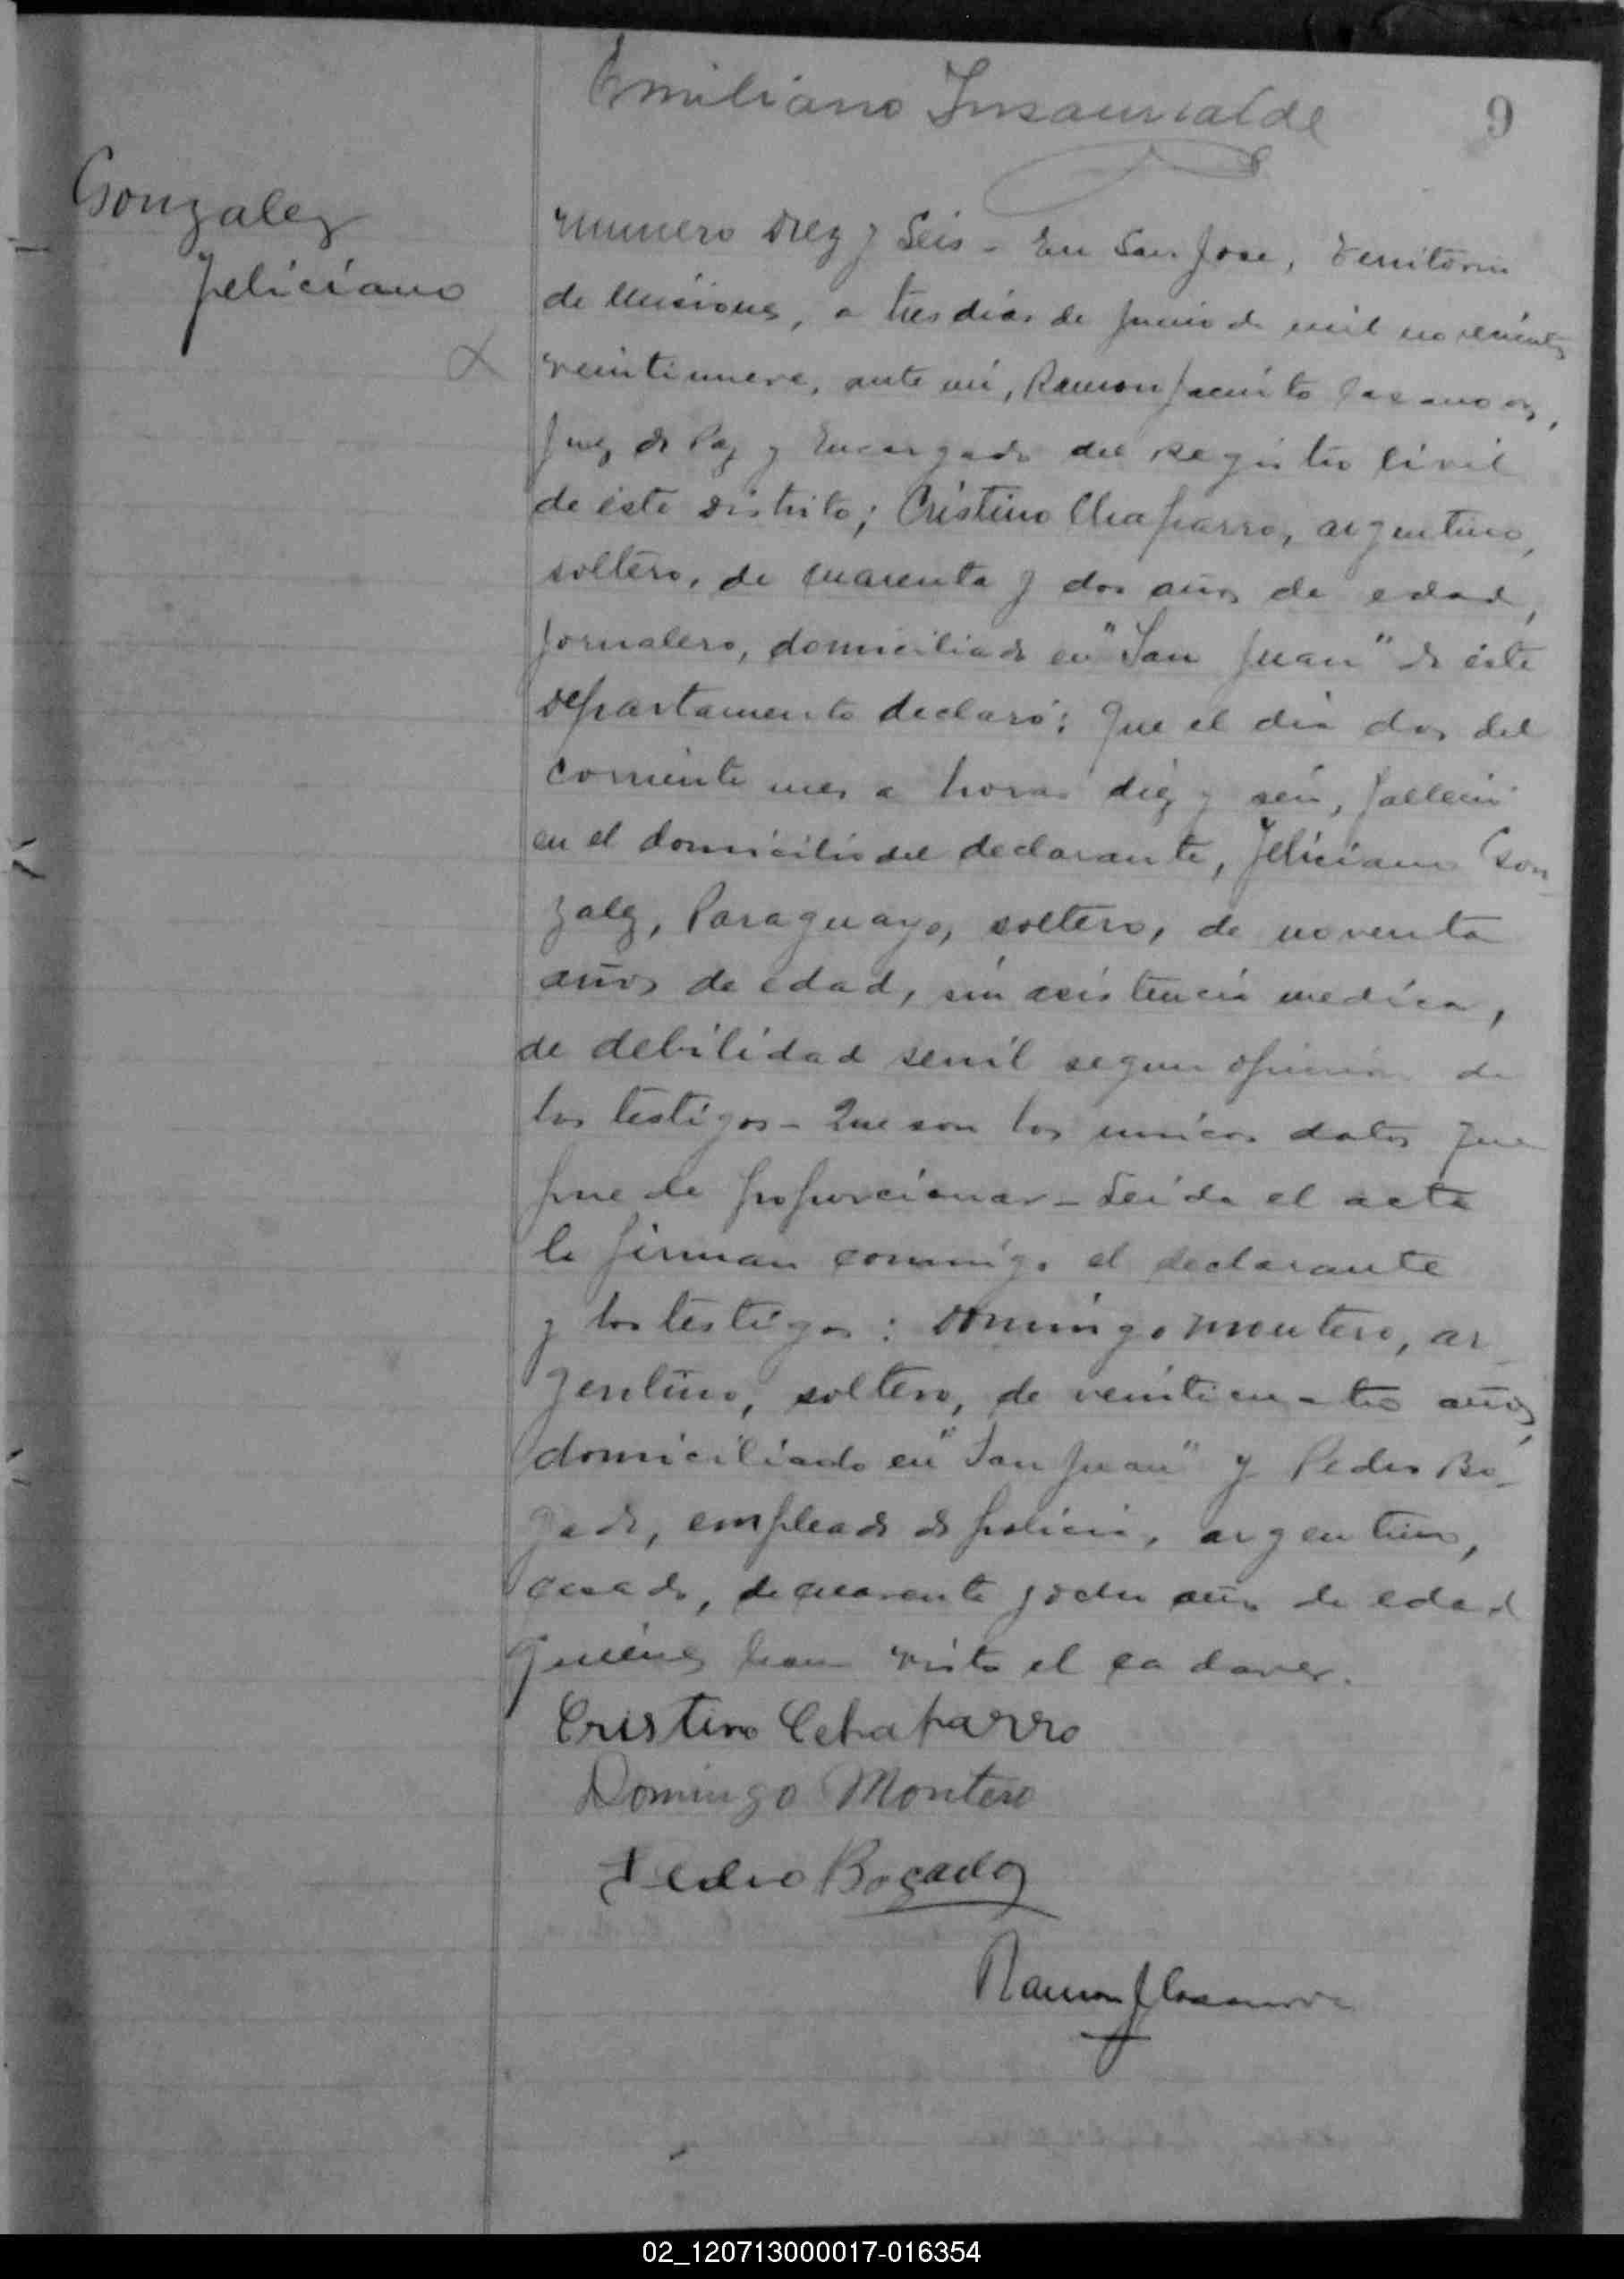 Emiliano Insaurralde
9
Gonzalez
Feliciano
numero Diez y Seis - En San Jose, Territorio
de Misiones, a tres dias de Junio de mil novecientos
veintinueve, ante mi, Ramon Jacinto Casanova,
Juez de Paz y Encargado del Registro Civil
de éste Distrito; Cristino Chaparro, argentino,
soltero, de cuarenta y dos años de edad,
Jornalero, domiciliado en "San Juan" de éste
Departamento declaró: Que el dia dos del
corriente mes a horas diez y seis, falleció
en el domicilio del declarante, Feliciano Gon
zalez, Paraguayo, soltero, de noventa
años de edad, sin asistencia medica,
de debilidad senil segun opinión de
los testigos - Que son los unicos datos que
puede proporcionar - Leida el acta
la firman conmigo el declarante
y los testigos: Domingo Montero, ar
gentino, soltero, de veinticuatro años,
domiciliado en "San Juan" y Pedro Bo-
gado, empleado de policia, argentino,
casado, de cuarenta y ocho años de edad
quienes han visto el cadaver.
Cristino Chaparro
Domingo Montero
Pedro Bogado
Ramon J Casanova
02_120713000017-016354